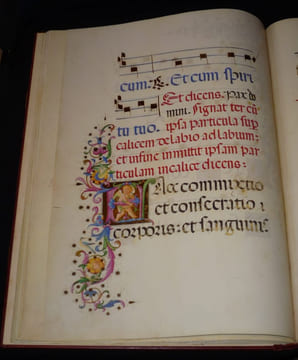 cum. ℟. Et cum spiri
Et dicens. pax dñi
mini. signat ter cū
tu tuo. ipsa particula sup̄
calicem de labio ad labium:
et infine inmittit ipsam par
ticulam in calicē dicens:
Haec commixtio
et consecratio
corporis: et sanguinis